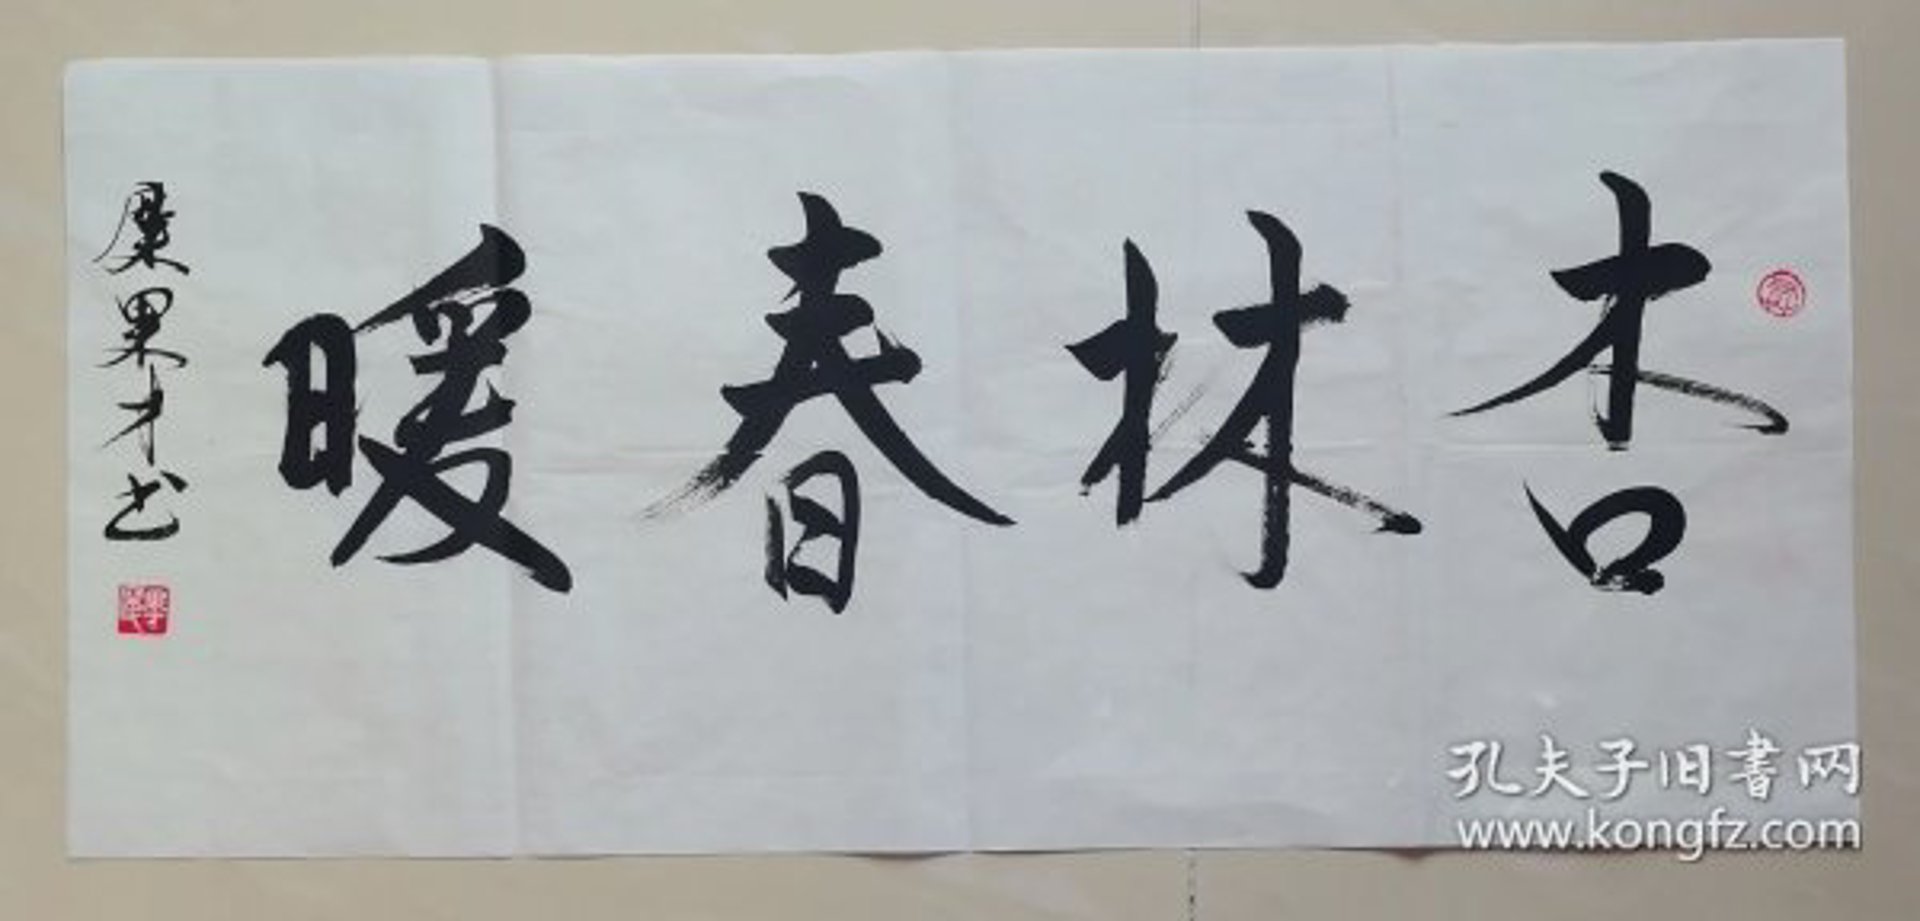 杏林春暖
果才书
孔夫子旧書网
www.kongfz.com